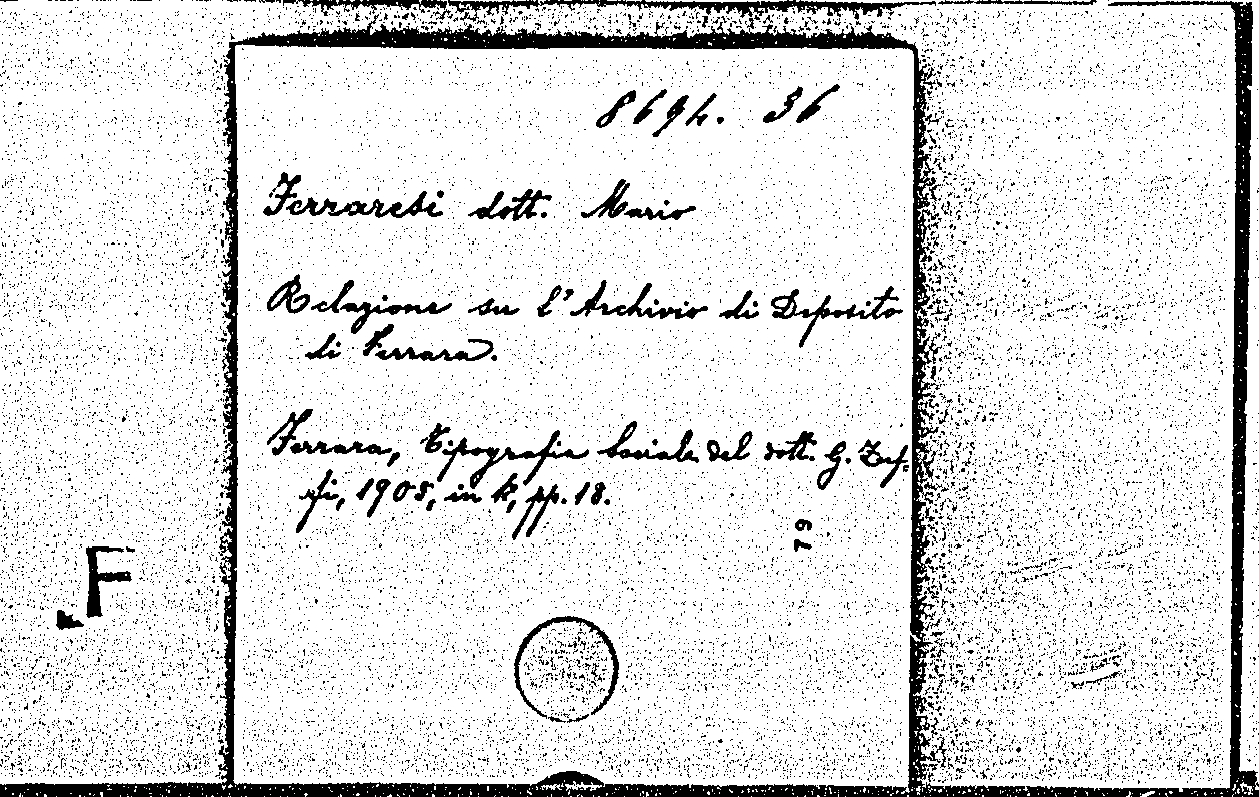 8694. 36
Ferraresi dott. Mario
Relazione su l'Archivio di Deposito
di Ferrara.
Ferrara, Tipografia Sociale del dott. G. Zuf-
fi, 1905, in 8, pp. 18.
79
F